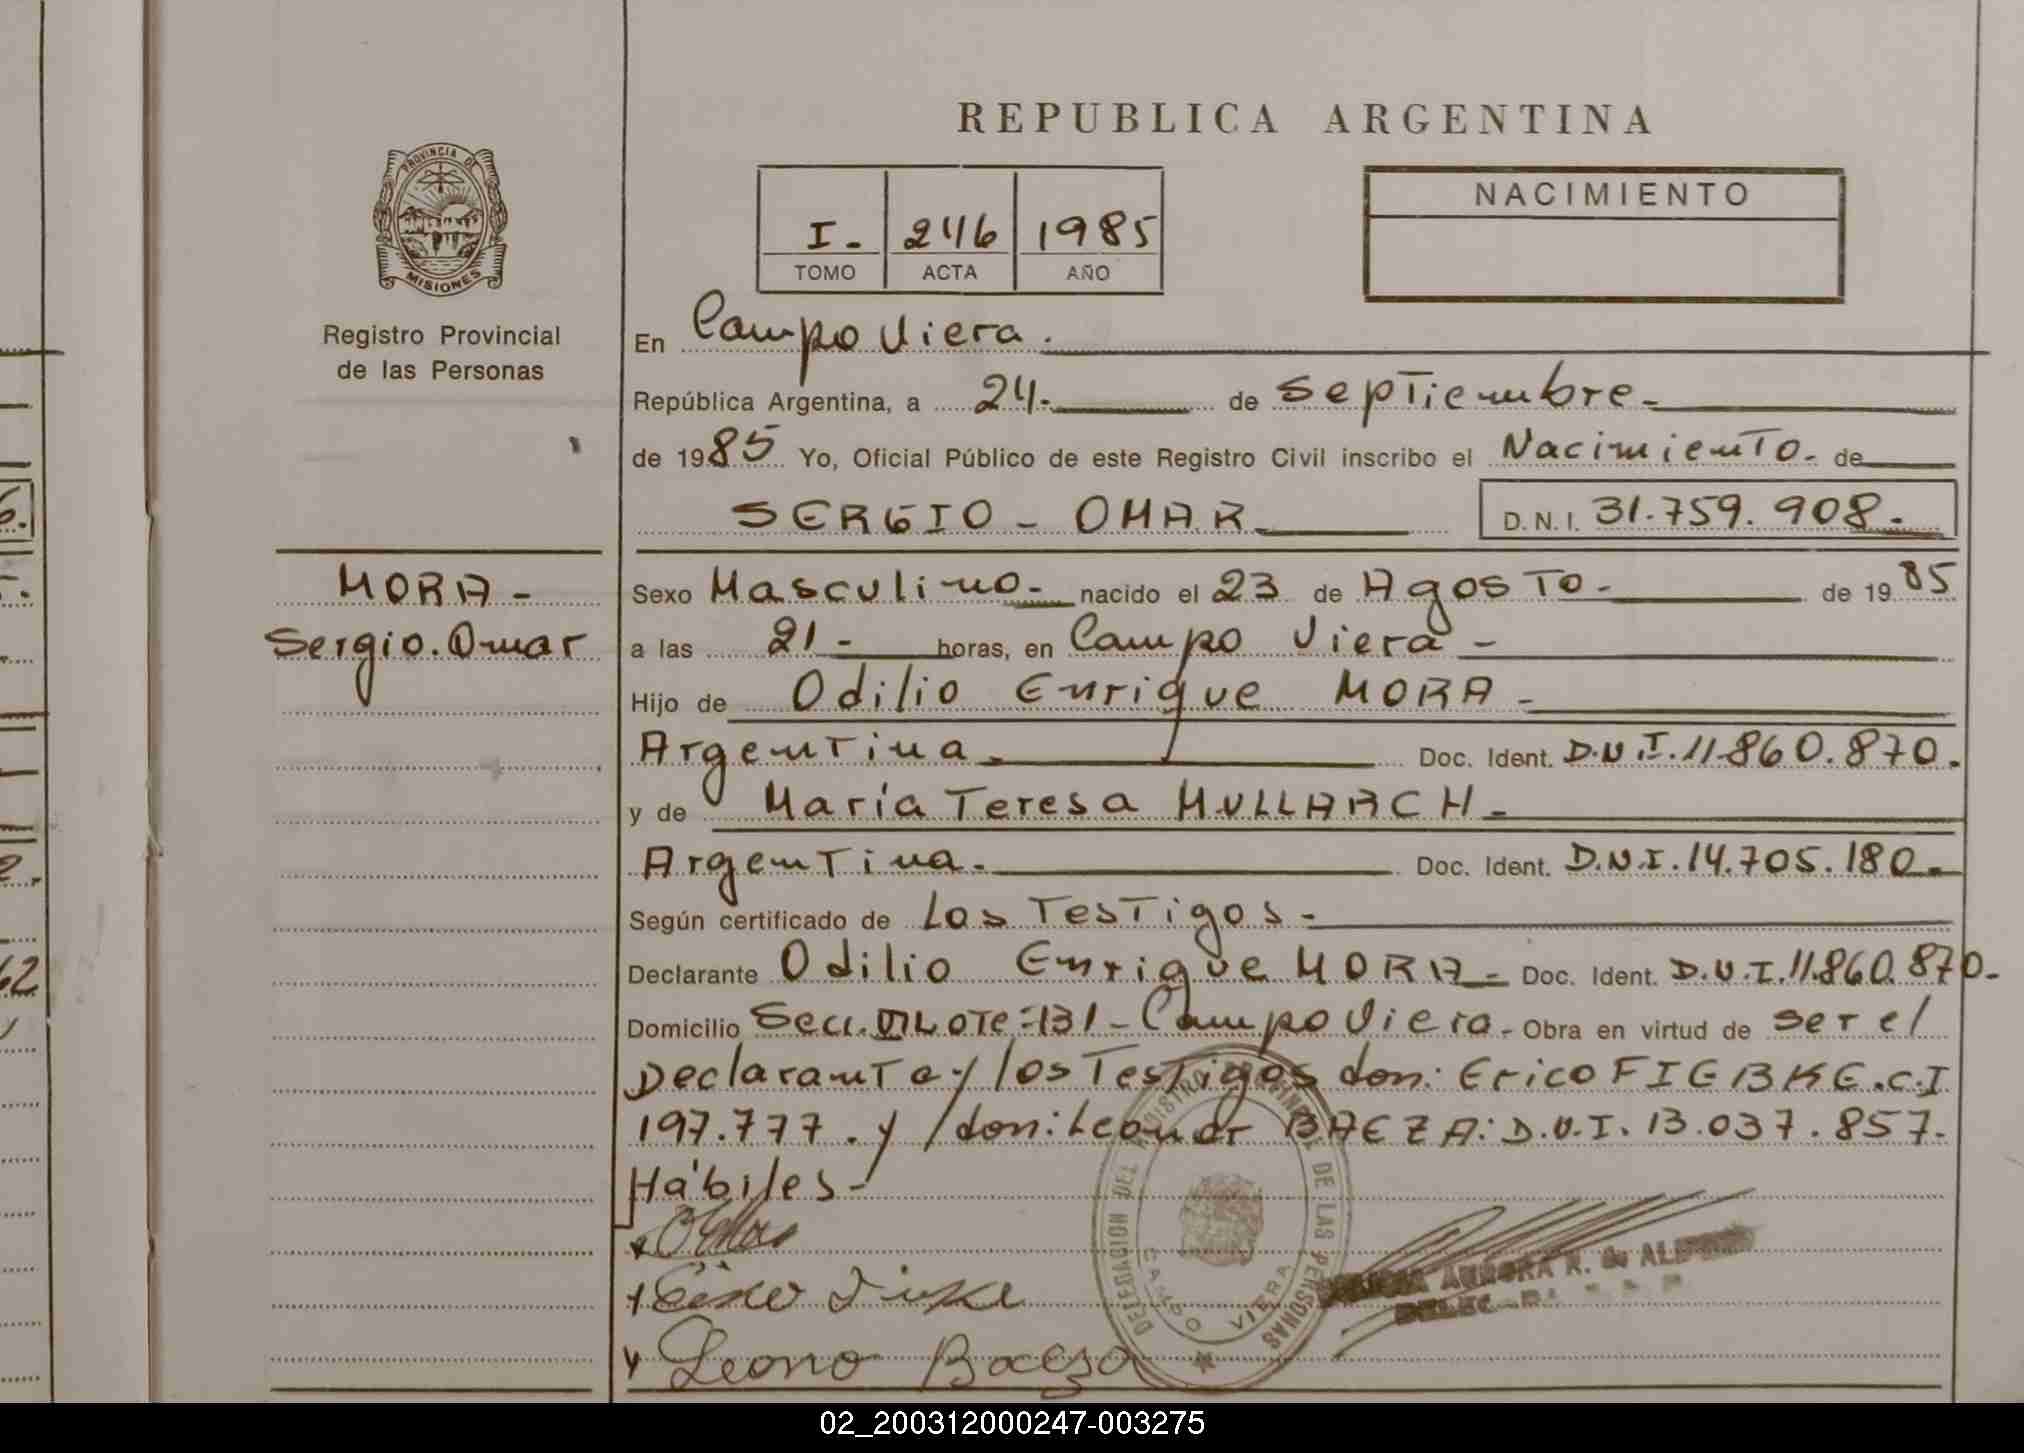 REPUBLICA ARGENTINA
PROVINCIA DE
MISIONES
Registro Provincial
de las Personas
I.- 246 1985
TOMO ACTA AÑO
NACIMIENTO
En Campo Viera.
República Argentina, a 24.- de Septiembre.-
de 1985 Yo, Oficial Público de este Registro Civil inscribo el Nacimiento.- de
SERGIO - OMAR.- D.N.I. 31.759.908.-
MORA -
Sergio. Omar
Sexo Masculino.- nacido el 23 de Agosto.- de 1985
a las 21 - horas, en Campo Viera -
Hijo de Odilio Enrique MORA -
Argentina.- Doc. Ident. D.N.I. 11.860.870.
y de María Teresa MULLARCH -
Argentina.- Doc. Ident. D.N.I. 14.705.180.-
Según certificado de Los Testigos.-
Declarante Odilio Enrique MORA - Doc. Ident. D.N.I. 11.860.870.-
Domicilio Secc. LOTE = 131 - Campo Viera.- Obra en virtud de ser el
Declarante y los Testigos don: Erico FIEBKE. C.I
197.777. y don: BAEZA: D.N.I. 13.037.857.
Hábiles -
Baeza
DELEGACION DEL REGISTRO PROVINCIAL DE LAS PERSONAS
CAMPO VIERA
AURORA R. de
02_200312000247-003275